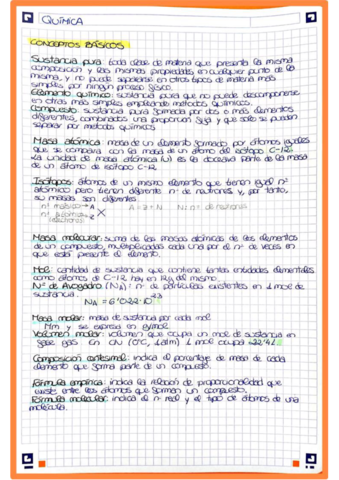 QUÍMICA
CONCEPTOS BÁSICOS
Sustancia pura: toda clase de materia que presenta la misma
composición y las mismas propiedades en cualquier punto de la
misma, y no puede separarse en otros tipos de materia más
simples por ningún proceso físico.
Elemento químico: sustancia pura que no puede descomponerse
en otras más simples empleando métodos químicos.
Compuesto: sustancia pura formada por dos o más elementos
diferentes, combinados una proporción fija y que sólo se pueden
separar por métodos químicos
Masa atómica: masa de un elemento formado por átomos iguales
que se compara con la masa de un átomo del isótopo C-12.
La unidad de masa atómica (u) es la doceava parte de la masa
de un átomo de isótopo C-12.
Isótopos: átomos de un mismo elemento que tienen igual nº
atómico pero tienen diferente nº de neutrones y, por tanto,
su masas son diferentes
nº másico A
A = Z + N
N: nº de neutrones
nº atómico Z
X
Masa molecular: suma de las masas atómicas de los elementos
de un compuesto, multiplicadas cada una por el nº de veces en
que está presente el elemento.
Mol: cantidad de sustancia que contiene tantas entidades elementales
como átomos de C-12 hay en
del mismo.
Nº de Avogadro (NA): nº de partículas existentes en 1 mol de
sustancia.
NA = 6'022·10²³
Masa molar: masa de sustancia por cada mol
Mm y se expresa en g/mol.
Volumen molar: volumen que ocupa un mol de sustancia en
fase gas. En CN (0ºC, 1 atm) 1 mol ocupa 22'4 l
Composición centesimal: indica el porcentaje de masa de cada
elemento que forma parte de un compuesto.
Fórmula empírica: indica la relación de proporcionalidad que
existe entre los átomos que forman un compuesto.
Fórmula molecular: indica el nº real y el tipo de átomos de una
molécula.